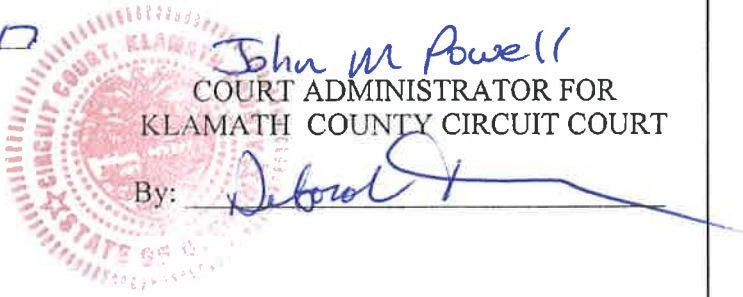 John M Powell
COURT ADMINISTRATOR FOR
KLAMATH COUNTY CIRCUIT COURT
By: Deborah
CIRCUIT COURT, KLAMATH
STATE OF